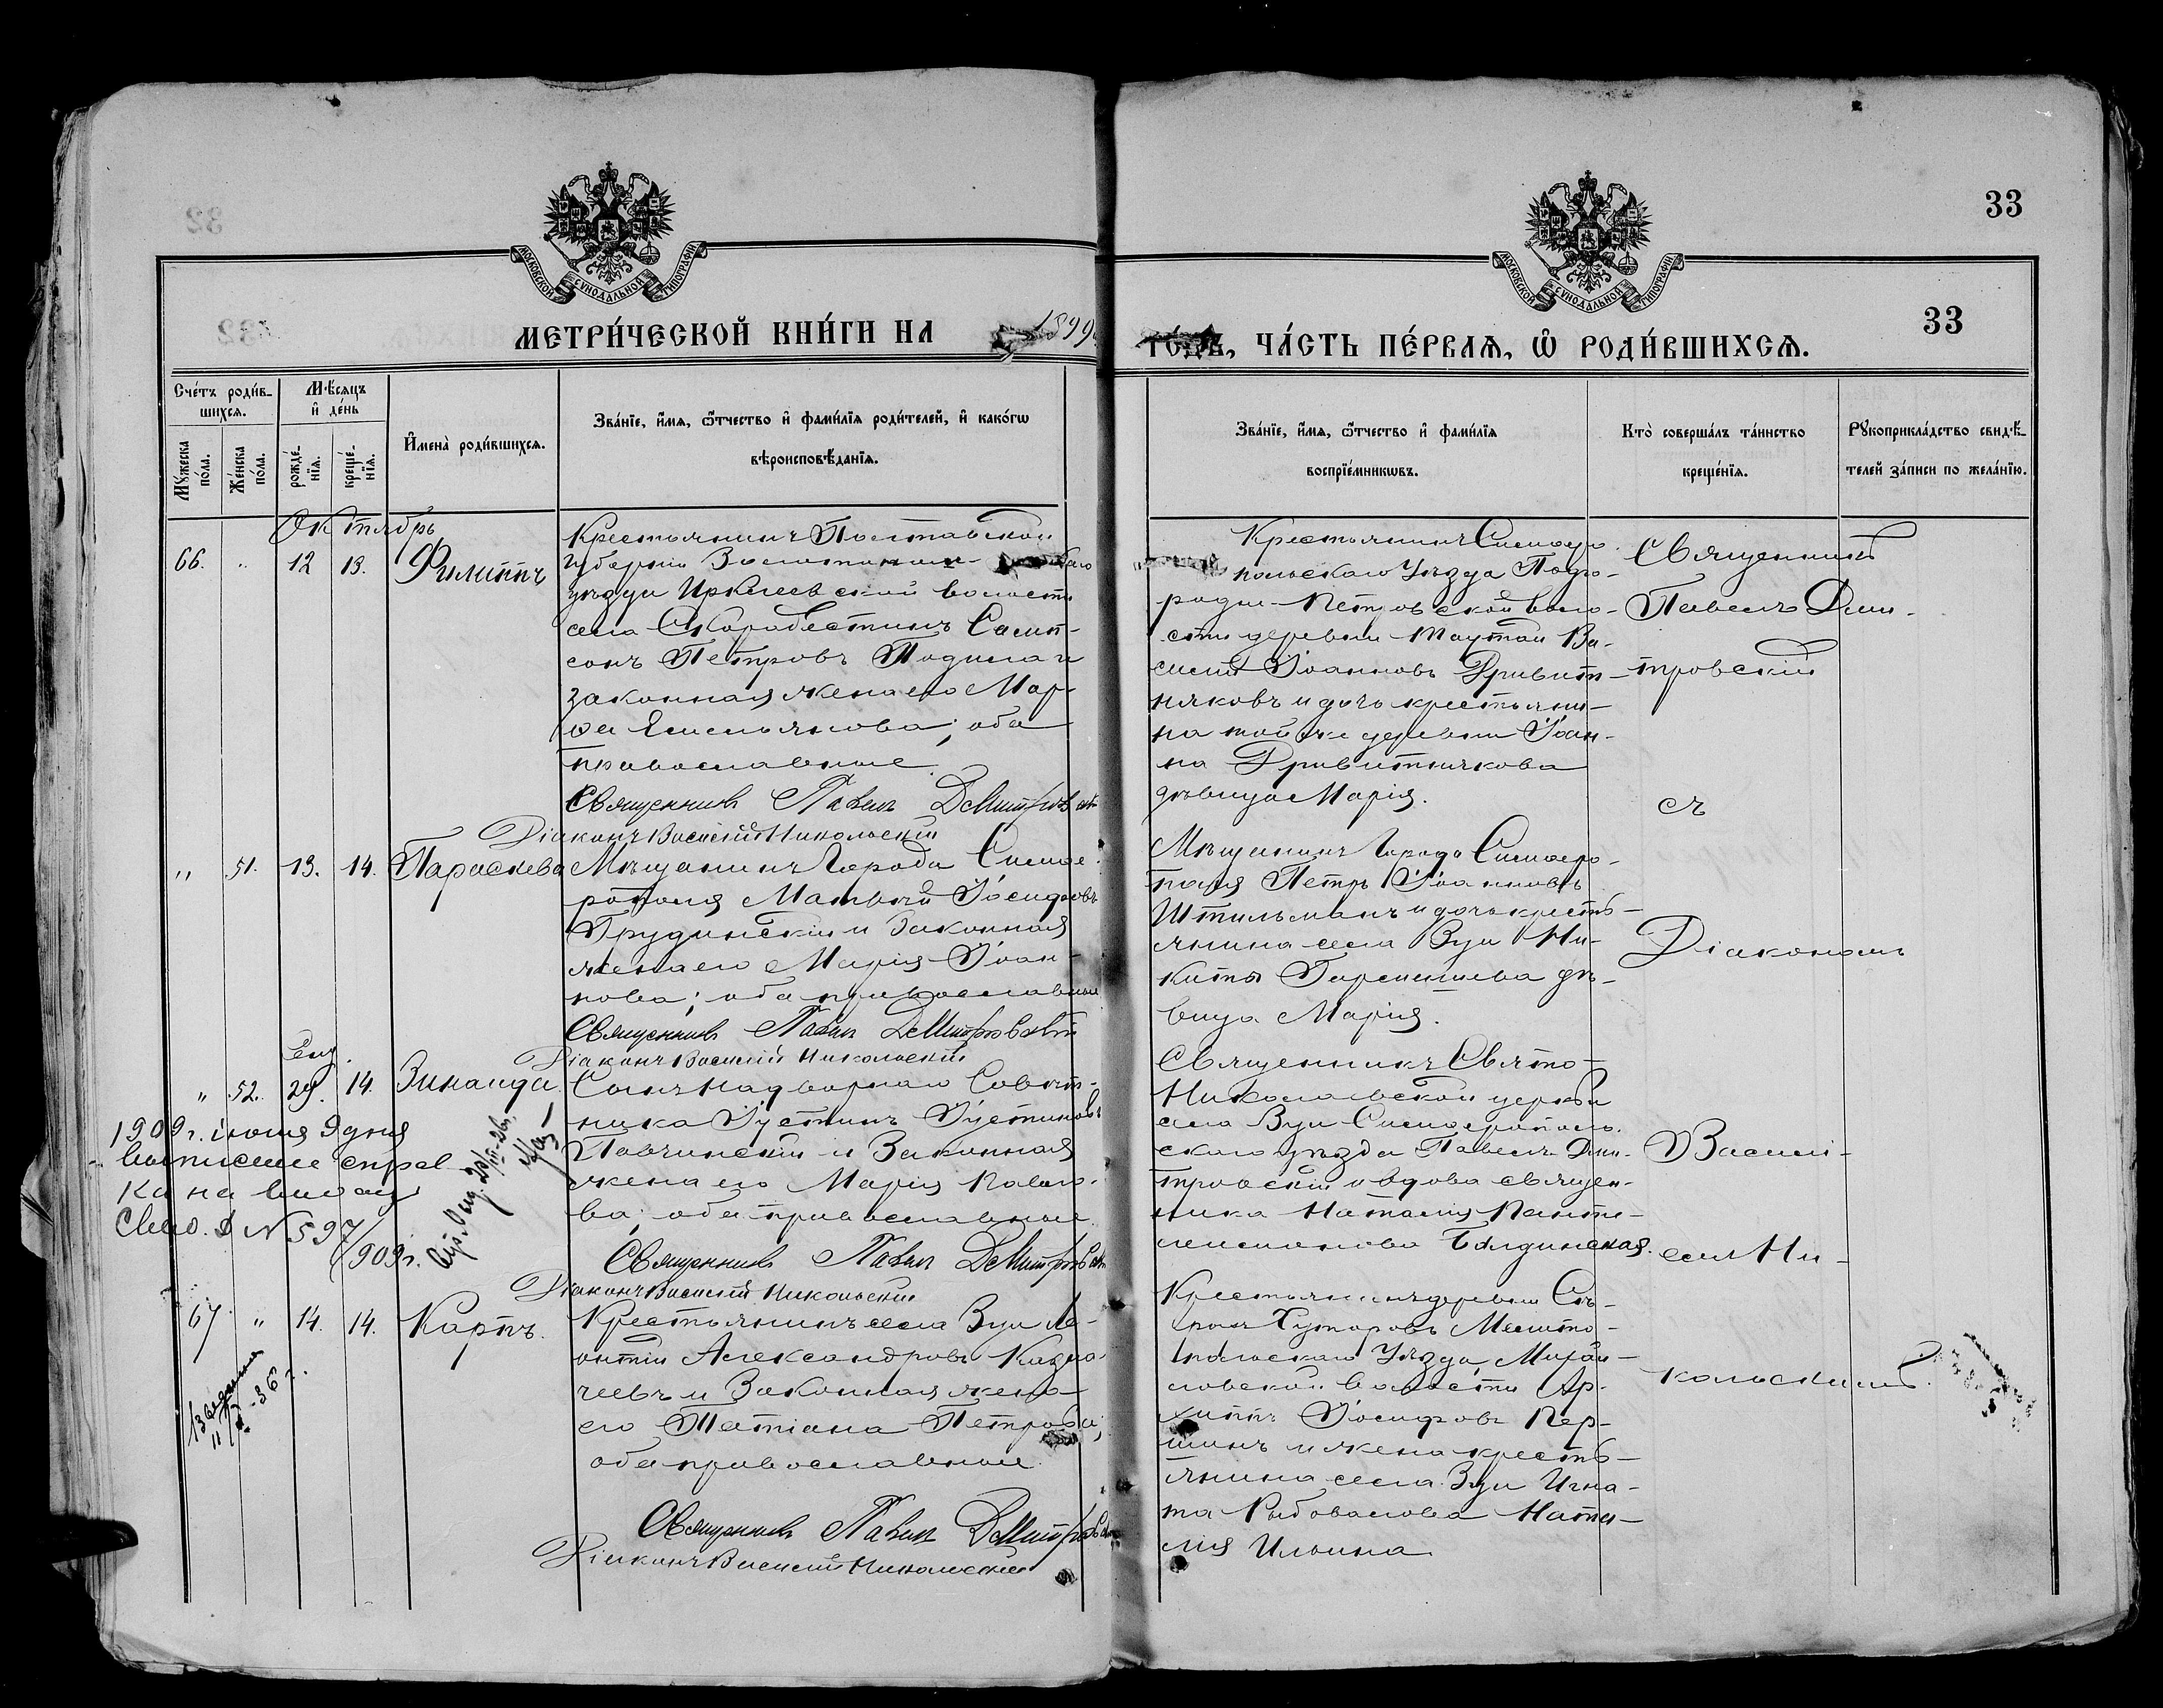 33
МОСКОВСКОЙ СУНОДАЛЬНОЙ ТИПОГРАФІИ
МОСКОВСКОЙ СУНОДАЛЬНОЙ ТИПОГРАФІИ
МЕТРИ́ЧЕСКОЙ КНИ́ГИ НА 1899
ЧА́СТЬ ПЕ́РВАЯ, Ѡ РОДИ́ВШИХСЯ.
33
Сче́тъ роди́в-
шихся.
Му́жеска
по́ла.
Же́нска
по́ла.
Мѣ́сяцъ
и де́нь
рожде́-
нїя.
креще́-
нїя.
Имена̀ роди́вшихся.
Зва́нїе, и́мя, ѻ́тчество и фами́лїя роди́телей, и како́гѡ
вѣроисповѣ́данїя.
Зва́нїе, и́мя, ѻ́тчество и фами́лїя
воспрїе́мникѡвъ.
Кто̀ соверша́лъ та́инство
креще́нїя.
Рꙋкоприкла́дство свидѣ́-
телей за́писи по жела́нїю.
Октябрь
66. " 12 13. Филиппъ
Крестьянинъ Полтавской
губерніи Золотонош-
уѣзда Ирклеевской волости
села Скородестикъ Самп-
сонъ Петровъ Подима и
законная жена его Мар-
ѳа Емельянова; оба
православные.
Священникъ Павелъ Дмитровскій
Діаконъ Василій Никольскій
Крестьянинъ Симферо-
польскаго Уѣзда Подго-
родне-Петровской воло-
сти деревни Таутай Ва-
силій Іоанновъ Дривит-
няковъ и дочь крестьяни-
на той же деревни Іоан-
на Дривитнякова
дѣвица Марія.
Священникъ
Павелъ Дми-
тровскій
съ
Діакономъ
Василі-
емъ Ни-
кольскимъ.
" 51. 13. 14. Параскева
Мѣщанинъ города Симфе-
рополя Матвѣй Іосифовъ
Грудинскій и законная
жена его Марія Іоан-
нова; оба православные
Священникъ Павелъ Дмитровскій
Діаконъ Василій Никольскій
Мѣщанинъ города Симферо-
поля Петръ Іоанновъ
Штильманъ и дочь кресть-
янина села Зуи Ни-
киты Гарсинева дѣ-
вица Марія.
Сен.
" 52. 29. 14. Зинаида
Сынъ Надворнаго Совѣт-
ника Іустинъ Іустиновъ
Павчинскій и Законная
жена его Марія Павло-
ва; оба православные.
Священникъ Павелъ Дмитровскій
Діаконъ Василій Никольскій
Священникъ Свято-
Николаевской церкви
села Зуи Симферополь-
скаго уѣзда Павелъ Дми-
тровскій и вдова священ-
ника Наталія Панте-
леимонова Балдинская.
1909 г. іюня 9 дня
выписана справ-
ка на выдачу
свид. № 597/
909 г.
67 " 14. 14. Карпъ.
Крестьянинъ села Зуи Ле-
онтій Александровъ Казна-
чеевъ и Законная жена
его Татіана Петрова;
оба православные.
Священникъ Павелъ Дмитровскій
Діаконъ Василій Никольскій
Крестьянинъ деревни Сѣ-
рыхъ Хуторовъ Мелито-
польскаго Уѣзда, Михай-
ловской волости Ар-
хиппъ Іосифовъ Пер-
шинъ и жена кресть-
янина села Зуи Игна-
та Рыбовалова Ната-
лія Ильина